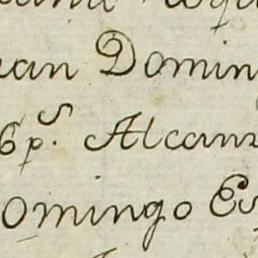 uan Domin
6p.s Alcanz
Domingo Es